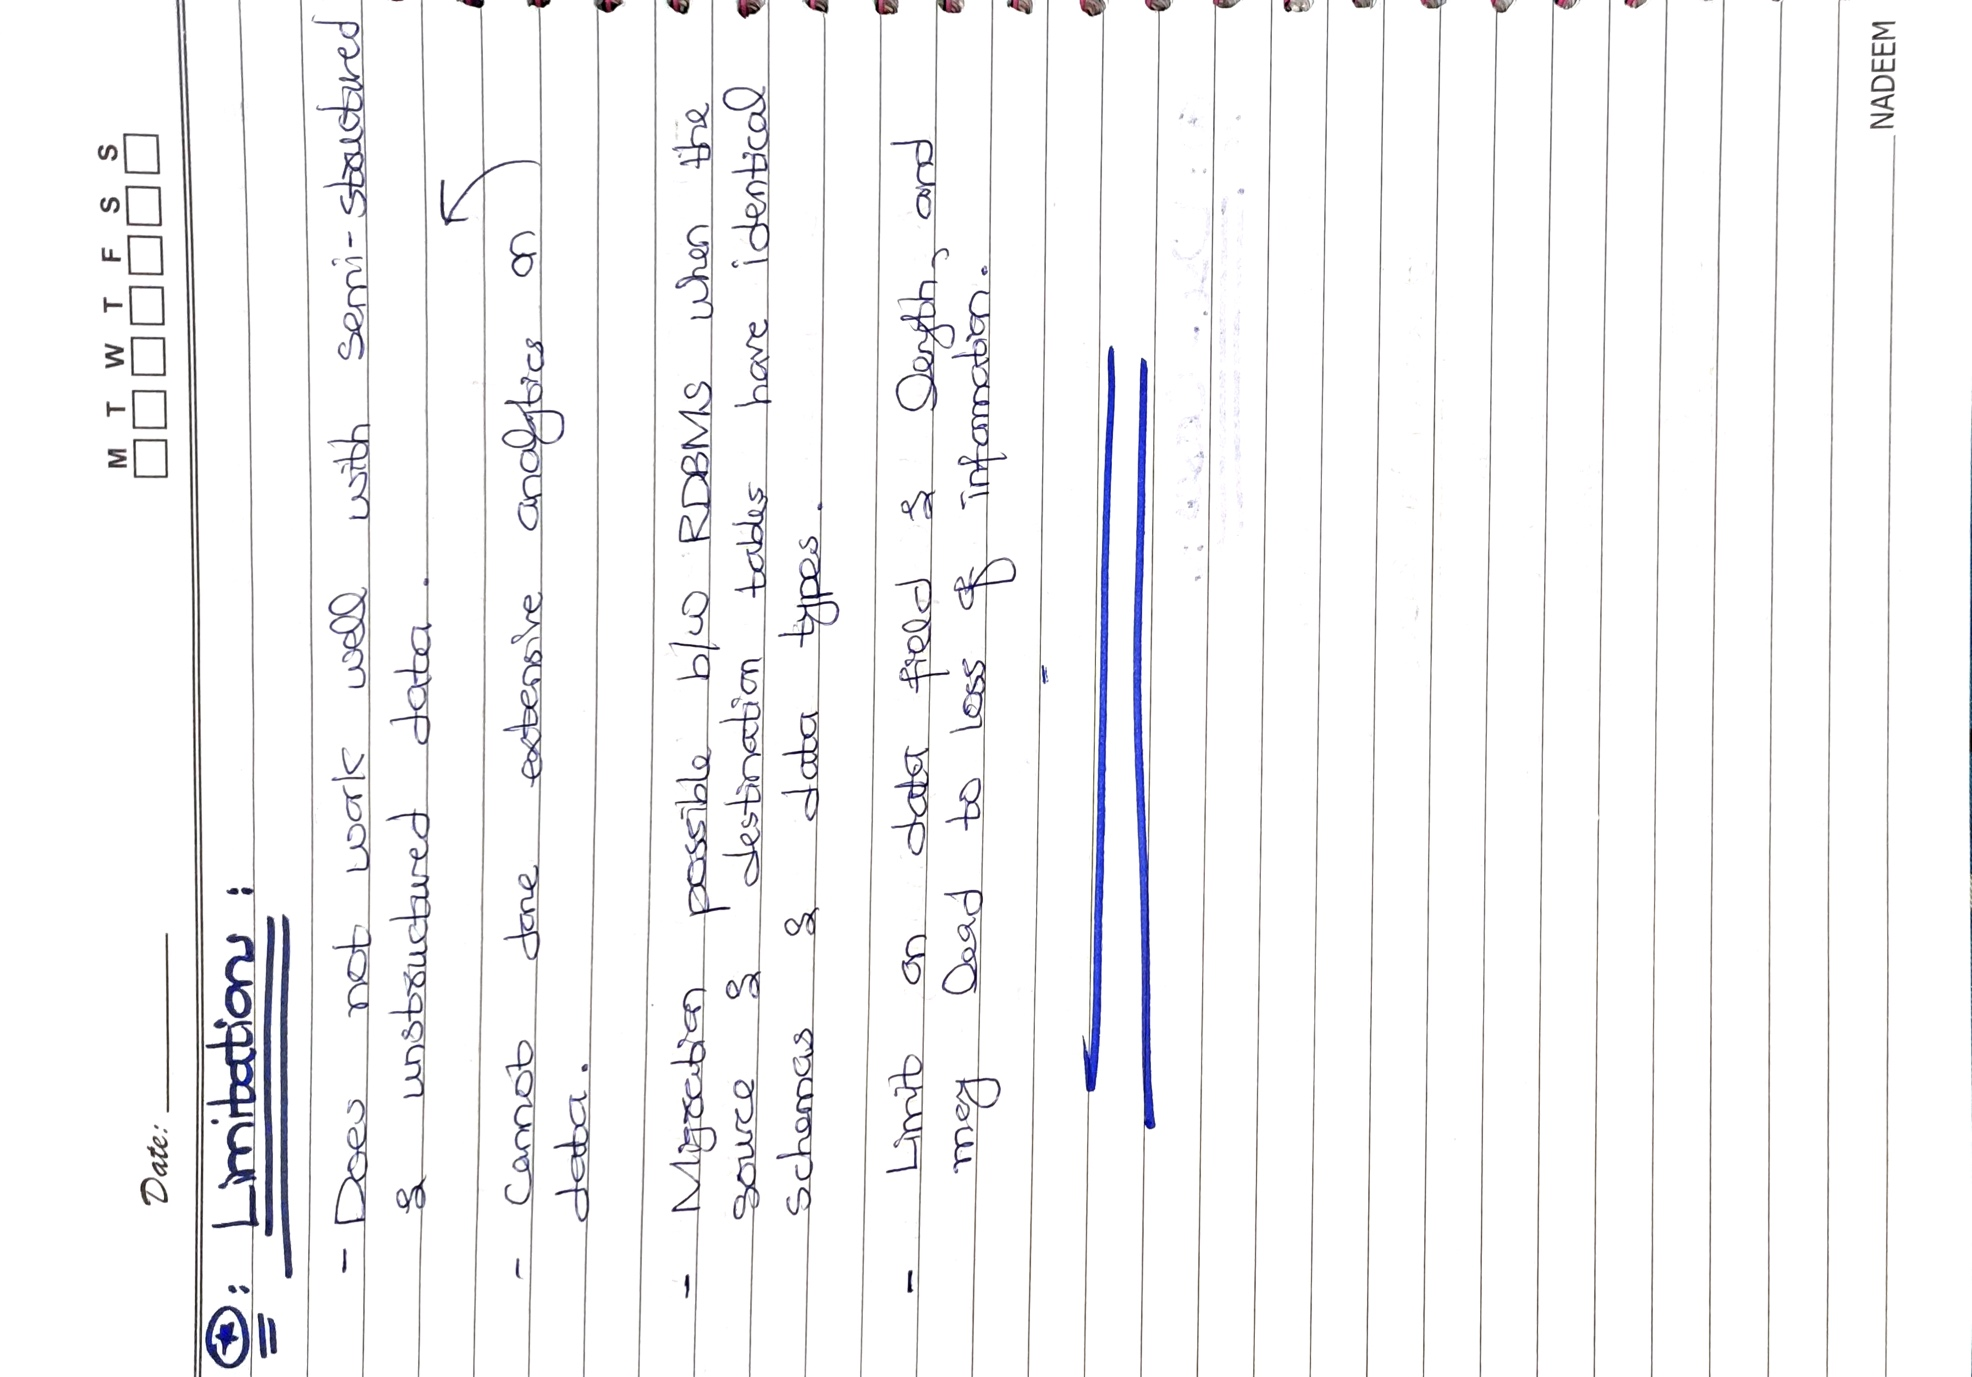 M T W T F S S
Date:
: Limitation :
- Does not work well with semi-structured
& unstructured data.
- Cannot done extensive analytics on
data.
- Migration possible b/w RDBMS when the
source & destination tables have identical
schemas & data types.
- Limit on data field & length, and
may lead to loss of information.
NADEEM